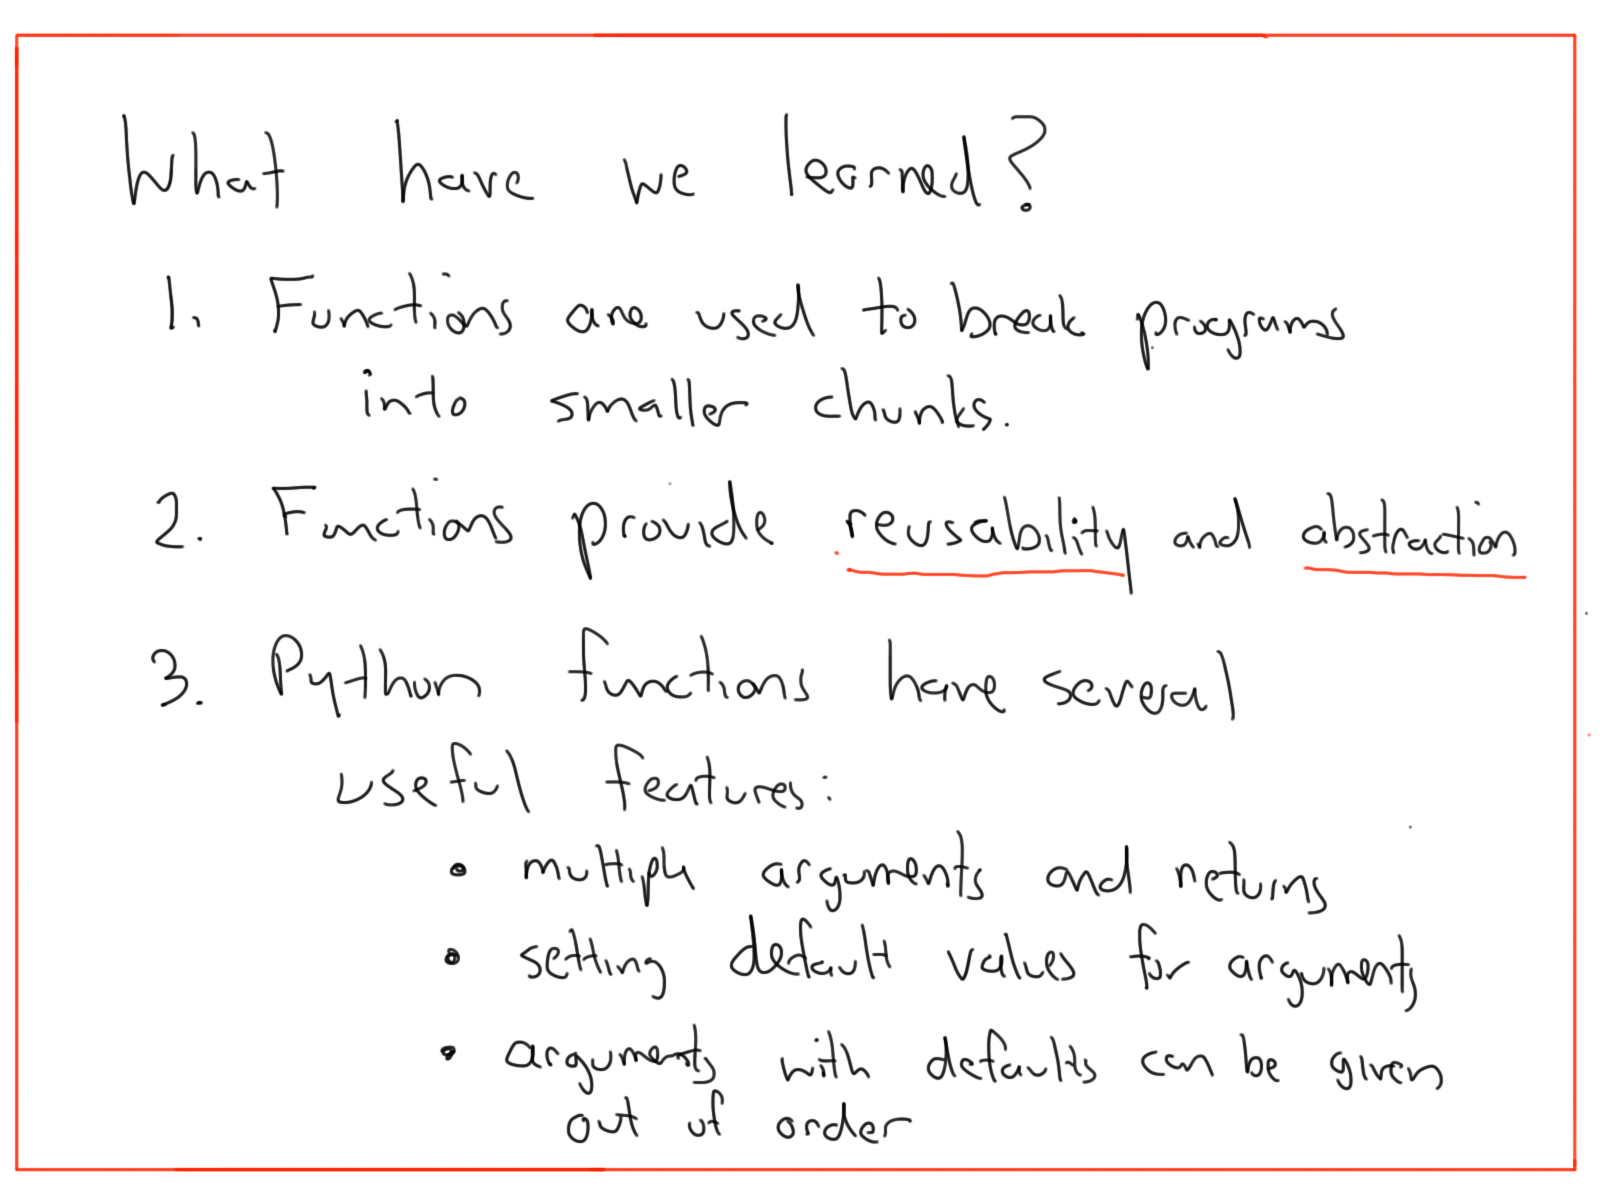 What have we learned?
1. Functions are used to break programs
into smaller chunks.
2. Functions provide reusability and abstraction
3. Python functions have several
useful features:
• multiple arguments and returns
• setting default values for arguments
• arguments with defaults can be given
out of order